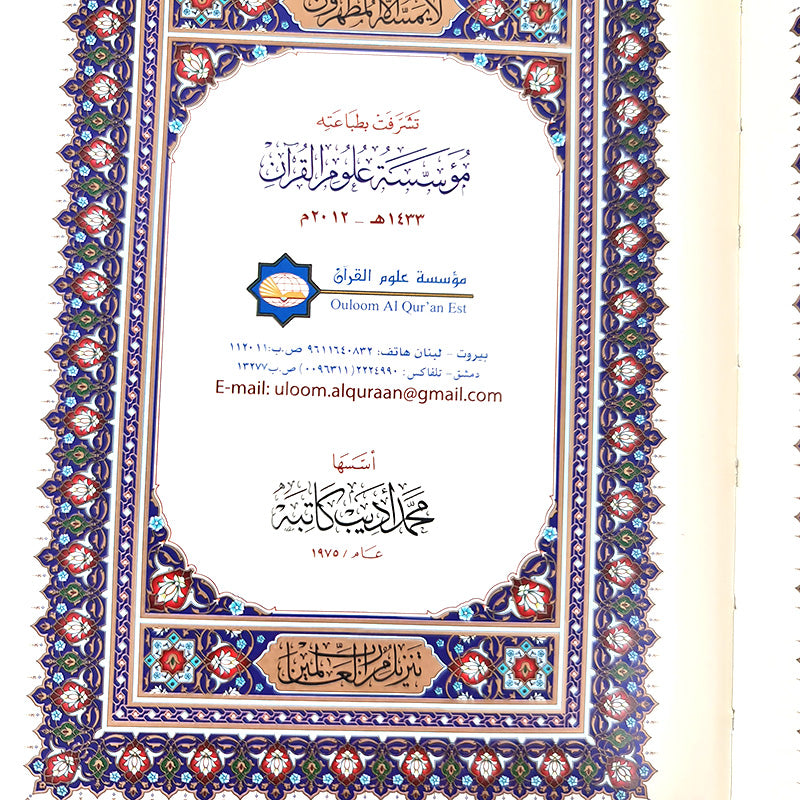 لا يمسه إلا المطهرون
تَشَرَّفَتْ بِطِبَاعَتِه
مُؤَسَّسَةُ عُلُومِ القُرآنِ
١٤٣٣هـ - ٢٠١٢م
مؤسسة علوم القرآن
Ouloom Al Qur'an Est
بيروت - لبنان هاتف: ٩٦١١٦٤٠٨٣٢ ص.ب: ١١٢٠١١
دمشق - تلفاكس: ٢٢٢٤٩٩٠(٠٠٩٦٣١١) ص.ب ١٣٢٧٧
E-mail: uloom.alquraan@gmail.com
أَسَّسَهَا
محمد أديب كاتبه
عام / ١٩٧٥
تنزيل من رب العالمين